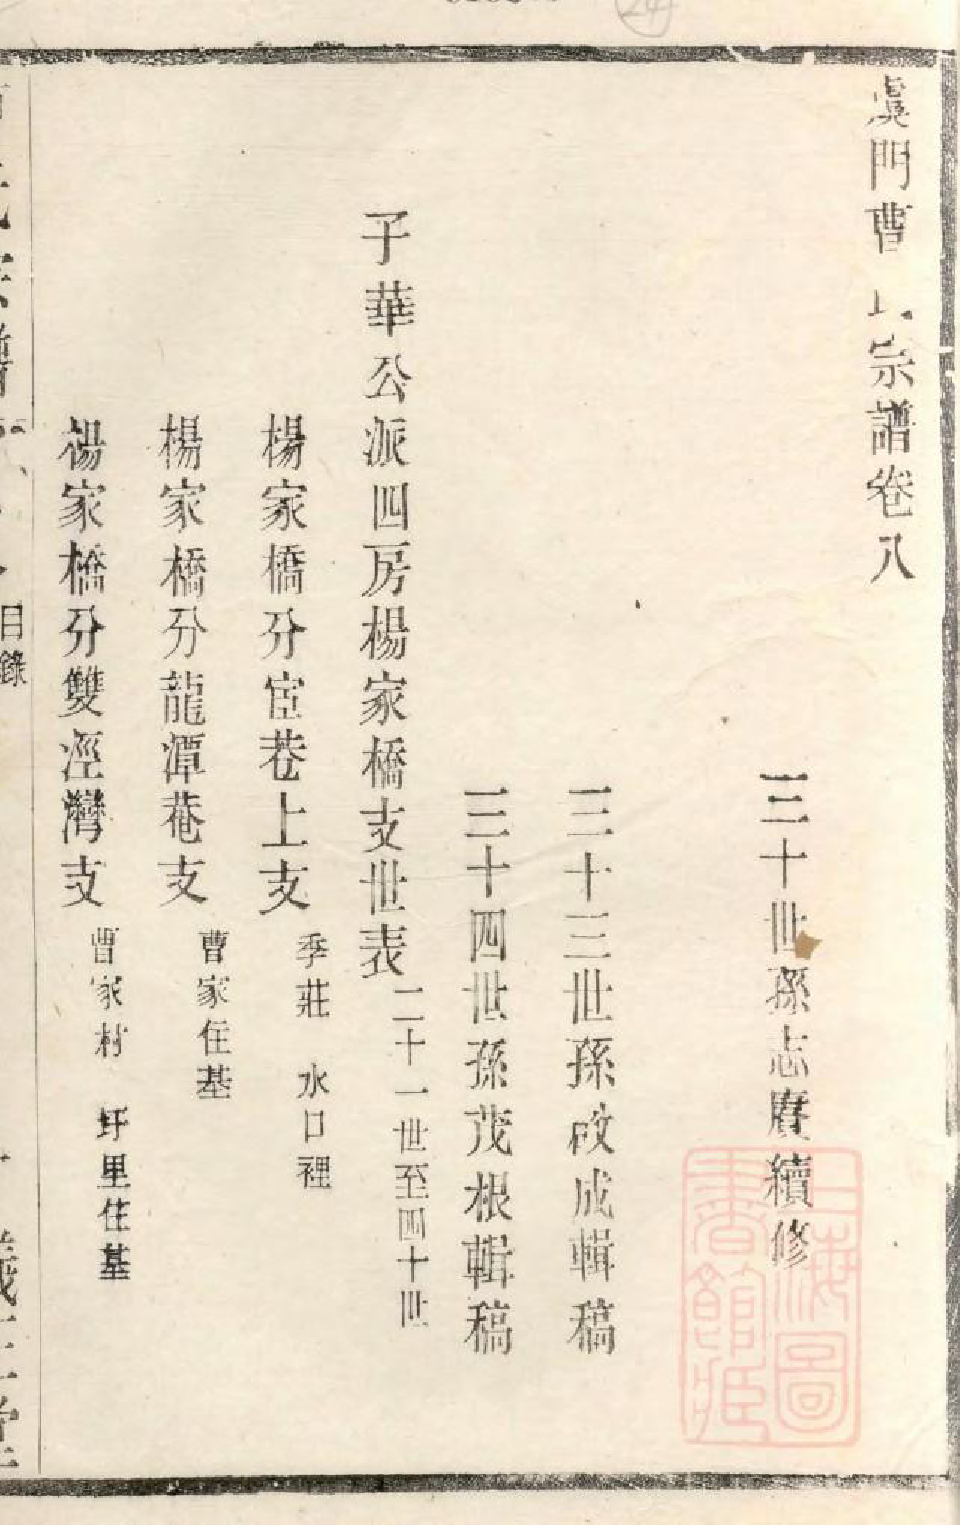 虞門曹氏宗譜卷八
三十世孫志賡續修
三十三世孫政成輯稿
三十四世孫茂根輯稿
子華公派四房楊家橋支世表 二十一世至四十世
楊家橋分宦巷上支 季莊 水口裡
楊家橋分龍潭菴支 曹家住基
楊家橋分雙涇灣支 曹家村 圩里住基
目錄
上海圖書館藏